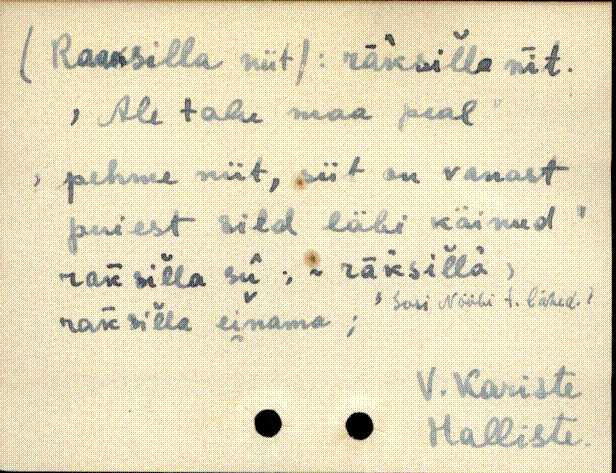 (Raaksilla niit): rāk̀silla nīt.
, Ale tahe maa peal"
, pehme niit, siit on vanast
puiest sild läbi käinud"
rak̄silla sū ; ~ rāk̀sillà,
" Suri Nööbi t. lähed.?
rak̄silla ei̯nama ;
V. Kariste
Halliste.